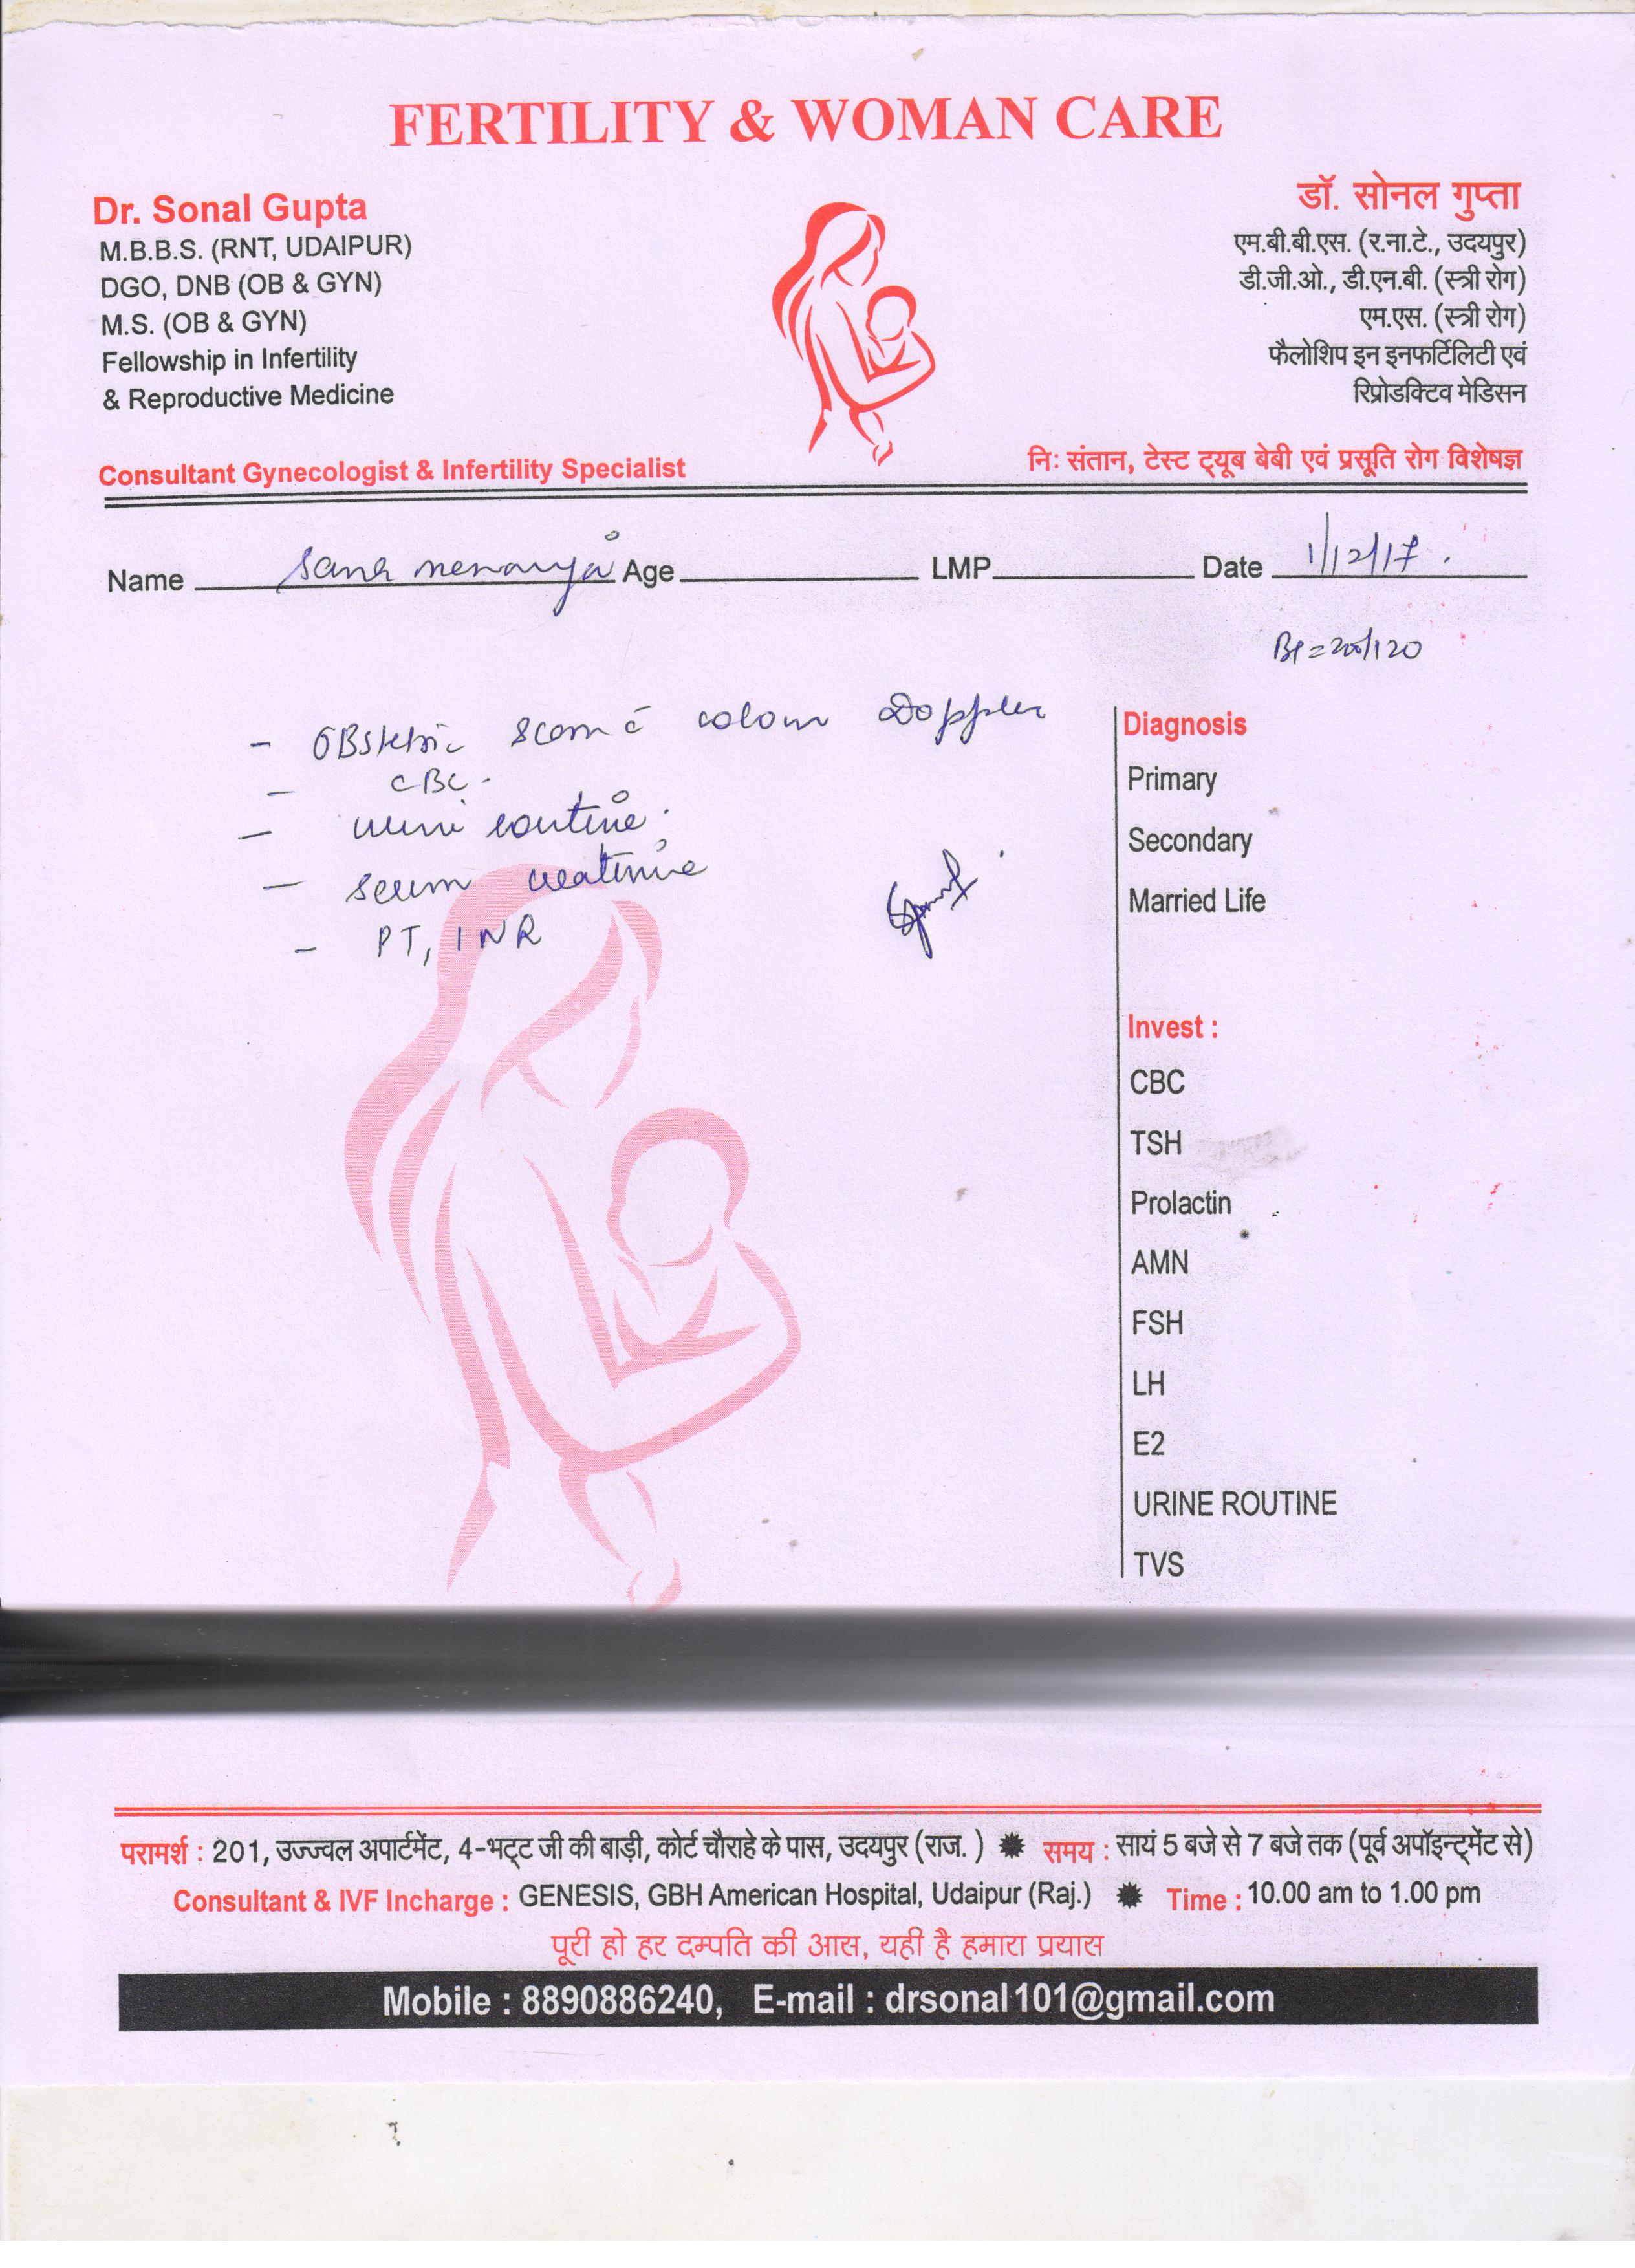 FERTILITY & WOMAN CARE
Dr. Sonal Gupta
M.B.B.S. (RNT, UDAIPUR)
DGO, DNB (OB & GYN)
M.S. (OB & GYN)
Fellowship in Infertility
& Reproductive Medicine
Consultant Gynecologist & Infertility Specialist
डॉ. सोनल गुप्ता
एम.बी.बी.एस. (र.ना.टे., उदयपुर)
डी.जी.ओ., डी.एन.बी. (स्त्री रोग)
एम.एस. (स्त्री रोग)
फैलोशिप इन इनफर्टिलिटी एवं
रिप्रोडक्टिव मेडिसन
निः संतान, टेस्ट ट्यूब बेबी एवं प्रसूति रोग विशेषज्ञ
Name Sana Age LMP Date 1/12/17.
BP = 200/120
- OBstetric scan c̄ colour Doppler
- CBC.
- urine routine.
- serum creatinine
- PT, INR
Diagnosis
Primary
Secondary
Married Life
Invest :
CBC
TSH
Prolactin
AMN
FSH
LH
E2
URINE ROUTINE
TVS
परामर्श : 201, उज्ज्वल अपार्टमेंट, 4-भट्ट जी की बाड़ी, कोर्ट चौराहे के पास, उदयपुर (राज. ) समय : सायं 5 बजे से 7 बजे तक (पूर्व अपॉइन्ट्मेंट से)
Consultant & IVF Incharge : GENESIS, GBH American Hospital, Udaipur (Raj.) Time : 10.00 am to 1.00 pm
पूरी हो हर दम्पति की आस, यही है हमारा प्रयास
Mobile : 8890886240, E-mail : drsonal101@gmail.com